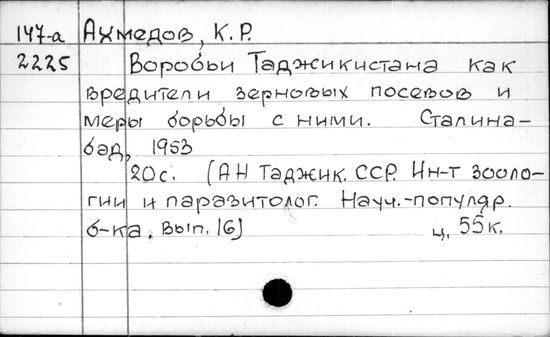 147-а Ахмедов, К.Р.
2225 Воробьи Таджикистана как
вредители зерновых посевов и
меры борьбы с ними. Сталина-
бад, 1953
20с. (АН Таджик. ССР. Ин-т зооло-
гии и паразитолог. Науч.-популяр.
б-ка. Вып. 16) ц. 55к.